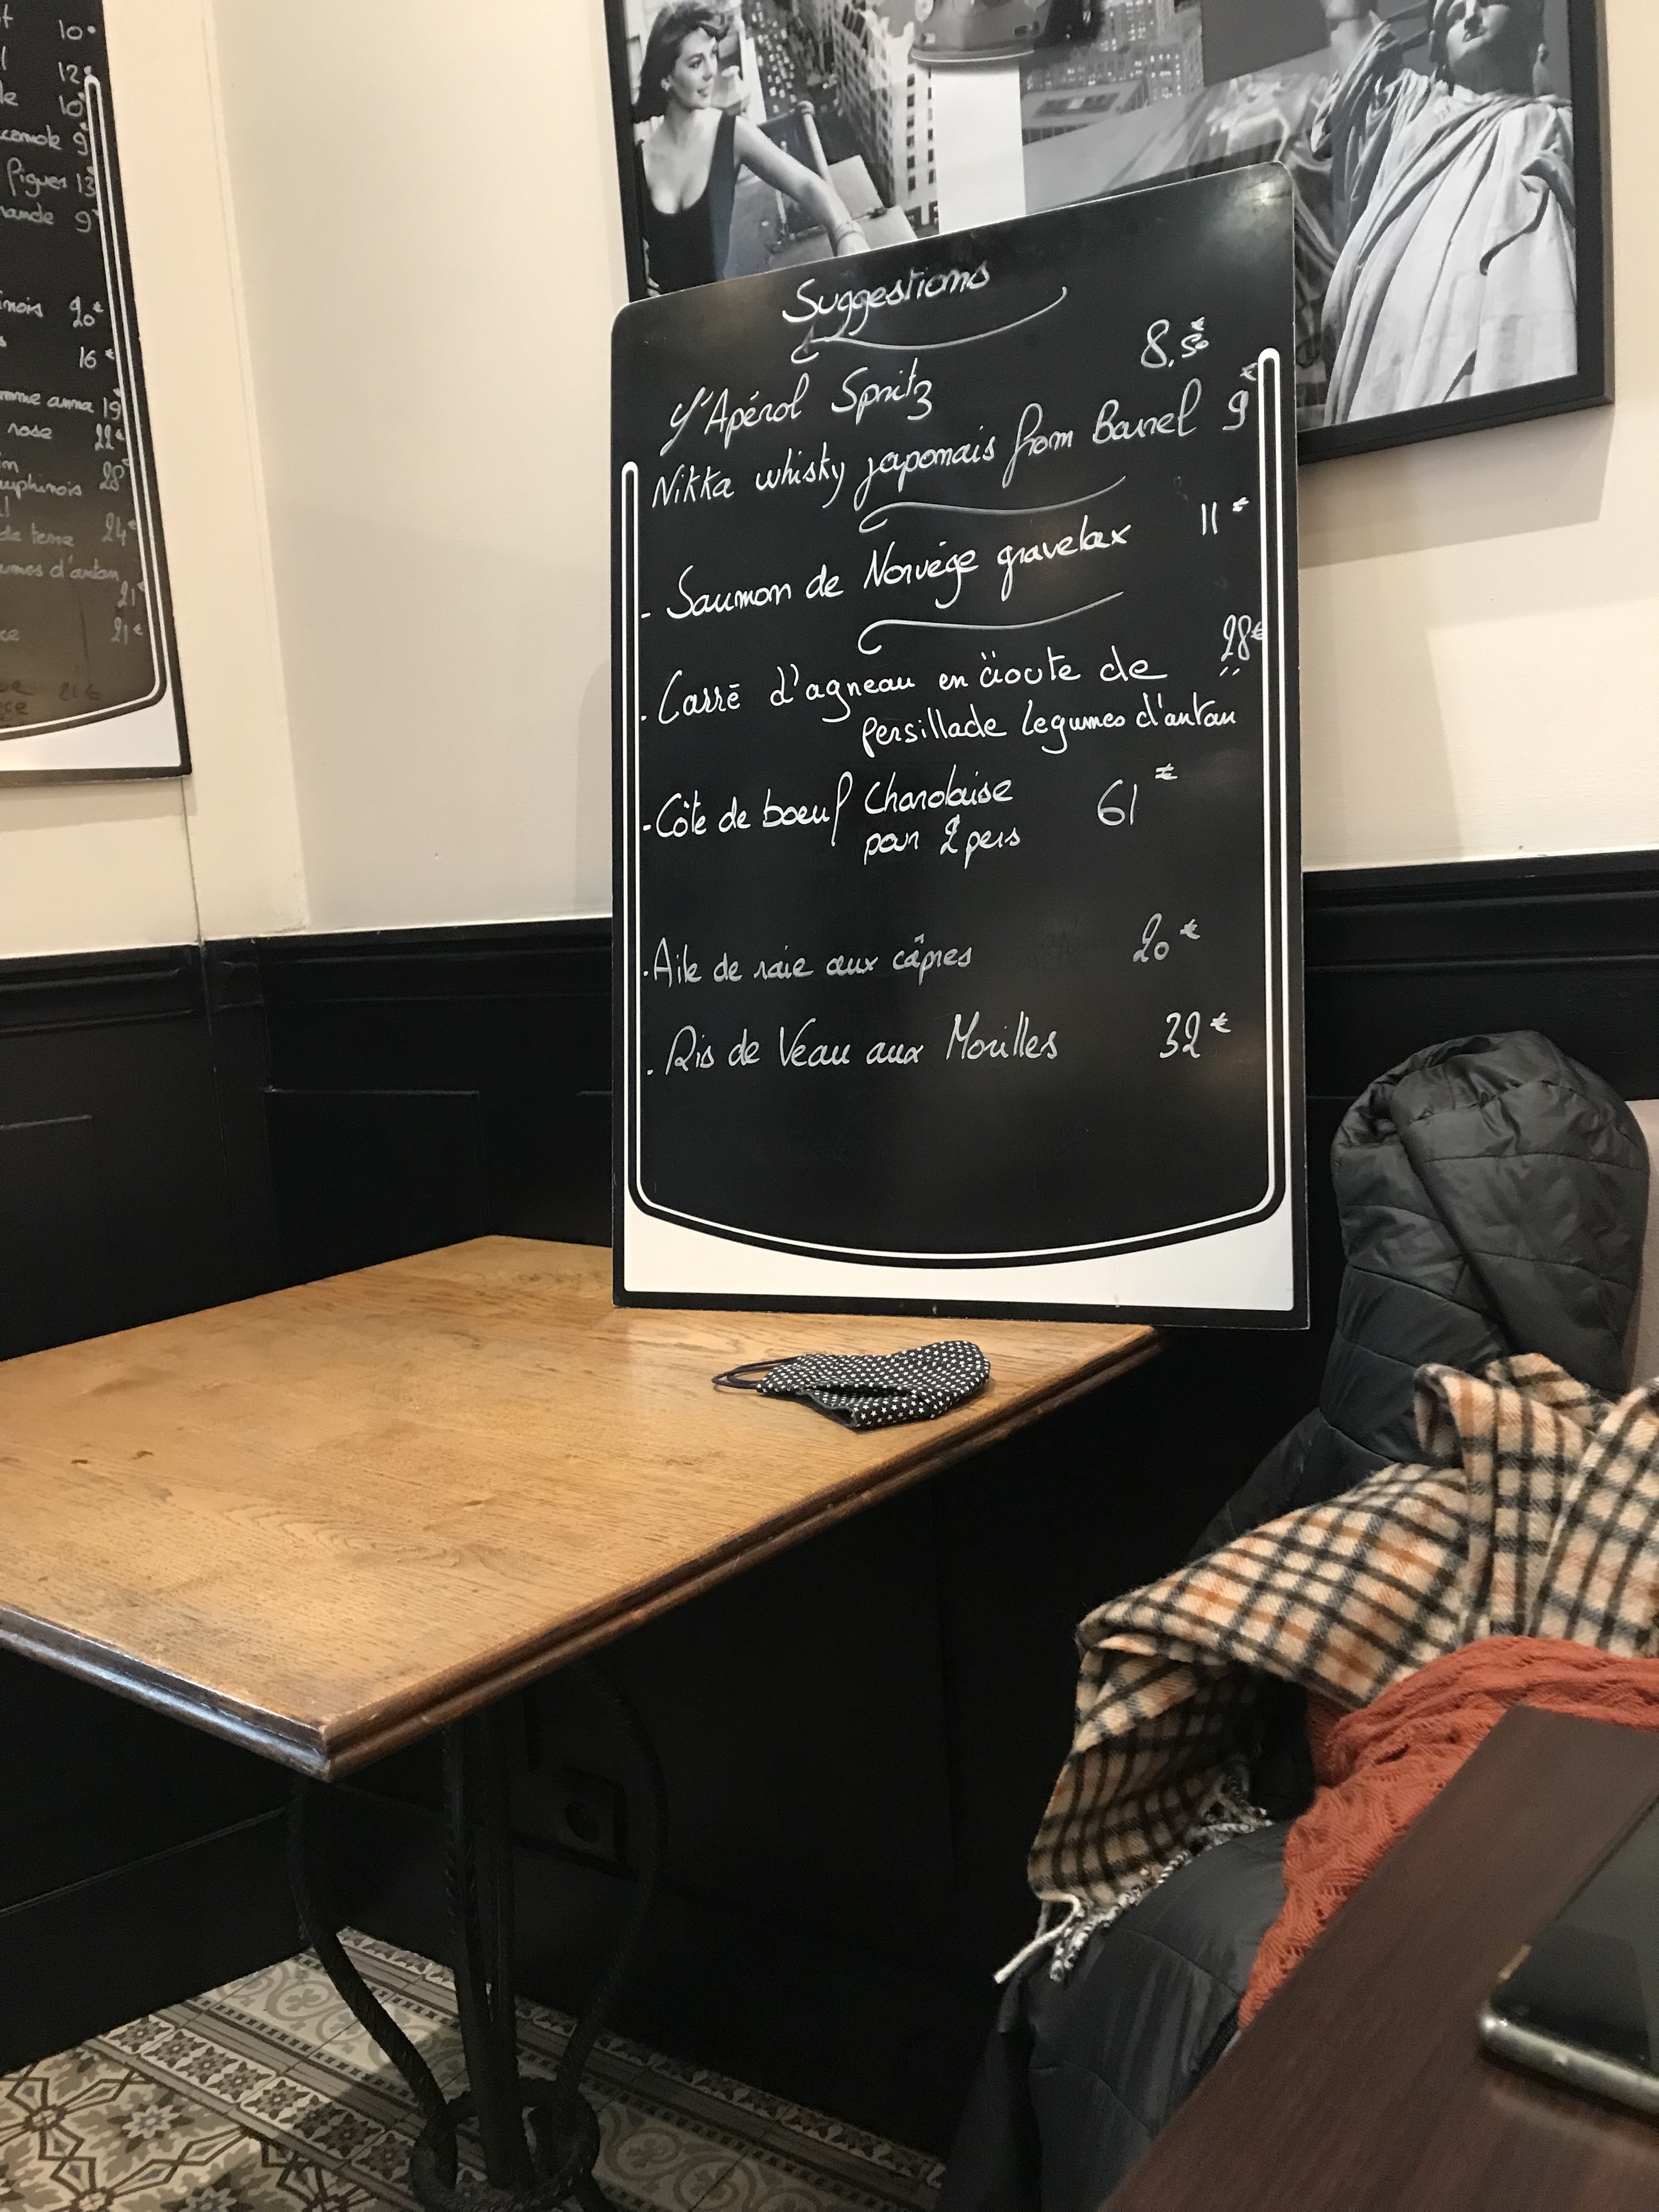 10€
12€
10€
9€
figues 13€
9€
20€
16€
anna 19€
rose 22€
28€
de terre 24€
d'antan
21€
21€
Suggestions
L'Apérol Spritz 8.50€
Nikka whisky japonais from Barrel 9€
- Saumon de Norvège gravelax 11€
. Carré d'agneau en croute de 28€
persillade legumes d'antan
- Côte de boeuf Charolaise 61€
pour 2 pers
. Aile de raie aux câpres 20€
. Ris de Veau aux Morilles 32€